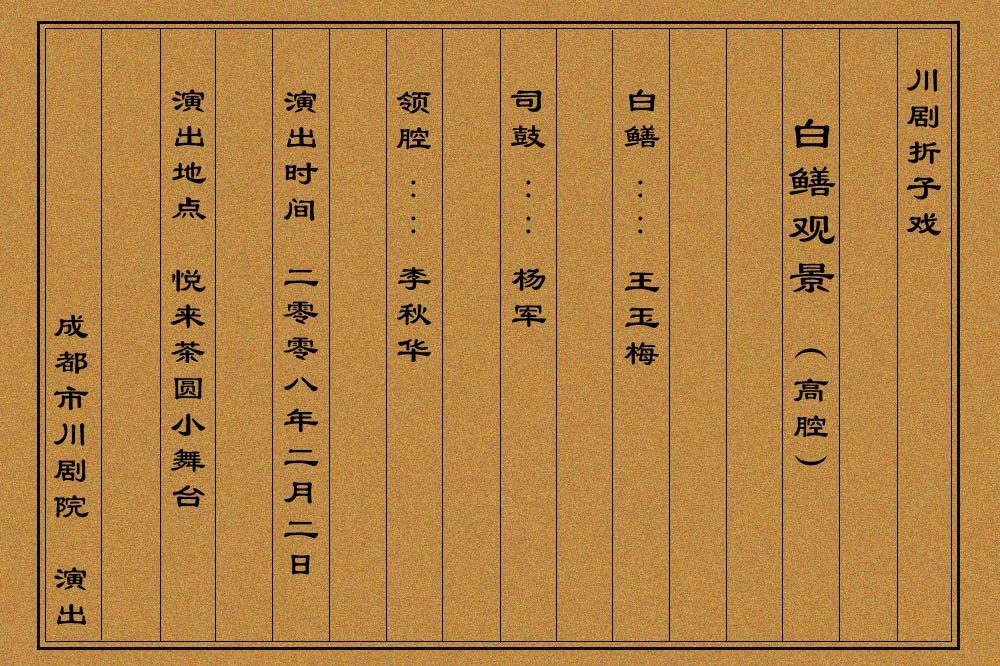 川剧折子戏
白鳝观景（高腔）
白鳝：：王玉梅
司鼓：：杨军
领腔：：李秋华
演出时间 二零零八年二月二日
演出地点 悦来茶圆小舞台
成都市川剧院 演出